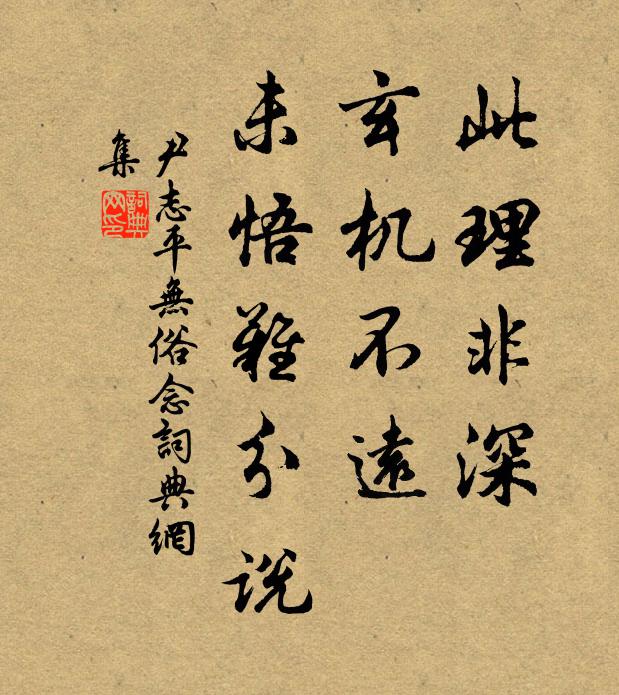 此理非深
玄机不遠
未悟難分説
尹志平無俗念詞典網
集
詞典
网印